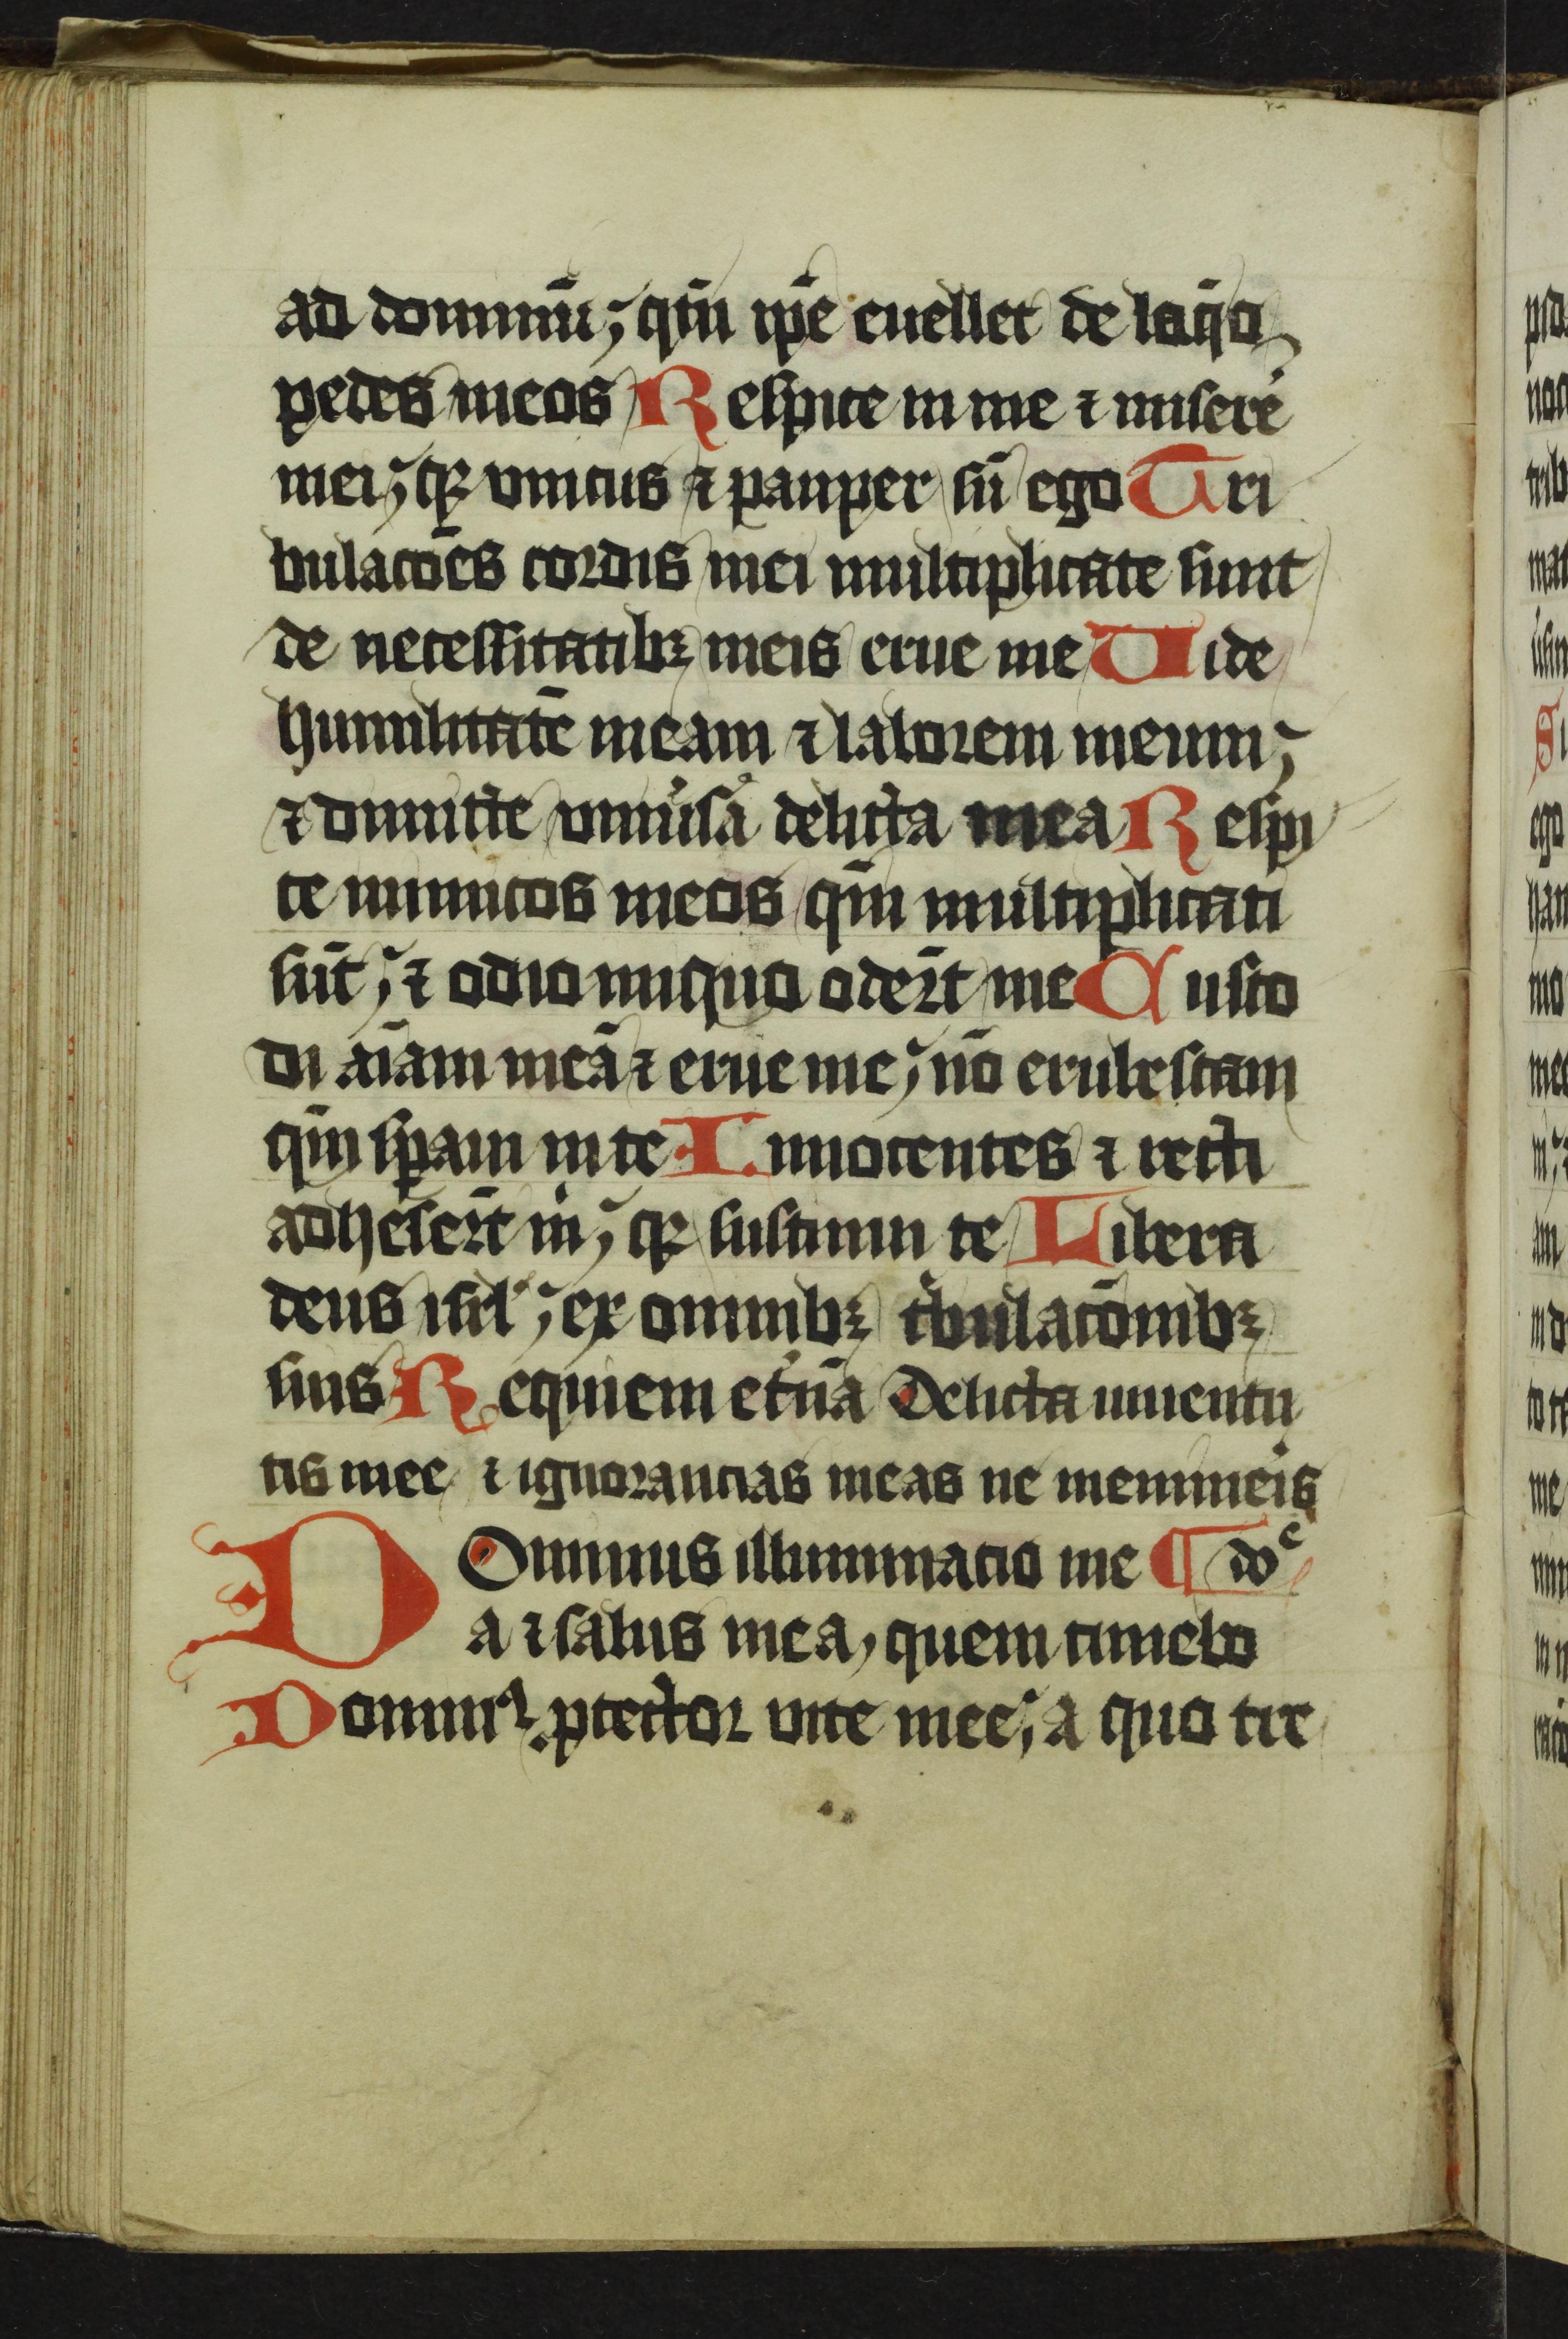 ad dominū; qm̄ ip̄e euellet de laq̄o
pedes meos Respice in me ⁊ misere᷑
mei; qꝛ vnicus ⁊ pauper sū ego Tri
bulacōes cordis mei multiplicate sunt
de necessitatibꝫ meis erue me Vide
humilitatē meam ⁊ laborem meum;
⁊ dimitte vniu᷑sa delicta mea Respi
ce inimicos meos qm̄ multiplicati
sūt; ⁊ odio iniquo oder̄t me Custo
di aīam meā ⁊ erue me; nō erubescam
qm̄ sp̄aui in te Innocentes ⁊ recti
adheser̄t m̄; qꝛ sustinui te Libera
deus isrl̄; ex omnibꝫ t᷑bulacōnibꝫ
suis Requiem et᷑nā Delicta iuuentu
tis mee ⁊ ignorancias meas ne memine᷑is
DOminus illuminacio me ¶ doᵉ
a ⁊ salus mea, quem timebo
Dominꝰ ꝓtector vite mee; a quo tre